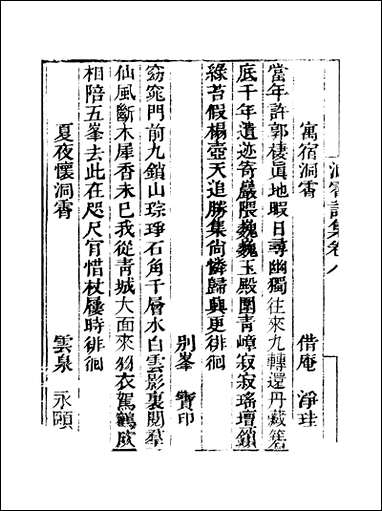 洞霄詩集卷八
寓宿洞霄 借庵 淨珪
當年許郭棲真地暇日尋幽獨往來九轉還丹藏窨
底千年遺迹寄巖隈巍巍玉殿圍青嶂寂寂瑤壇鎖
綠苔假榻壺天追勝集尙憐歸興更徘徊
別峯 寶印
窈窕門前九鎖山琮琤石角千層水白雲影裏閱羣
仙風斷木犀香未已我從青城大面來羽衣駕鶴成
相陪五峯去此在咫尺肯惜杖屨時徘徊
夏夜懷洞霄 雲泉 永頤